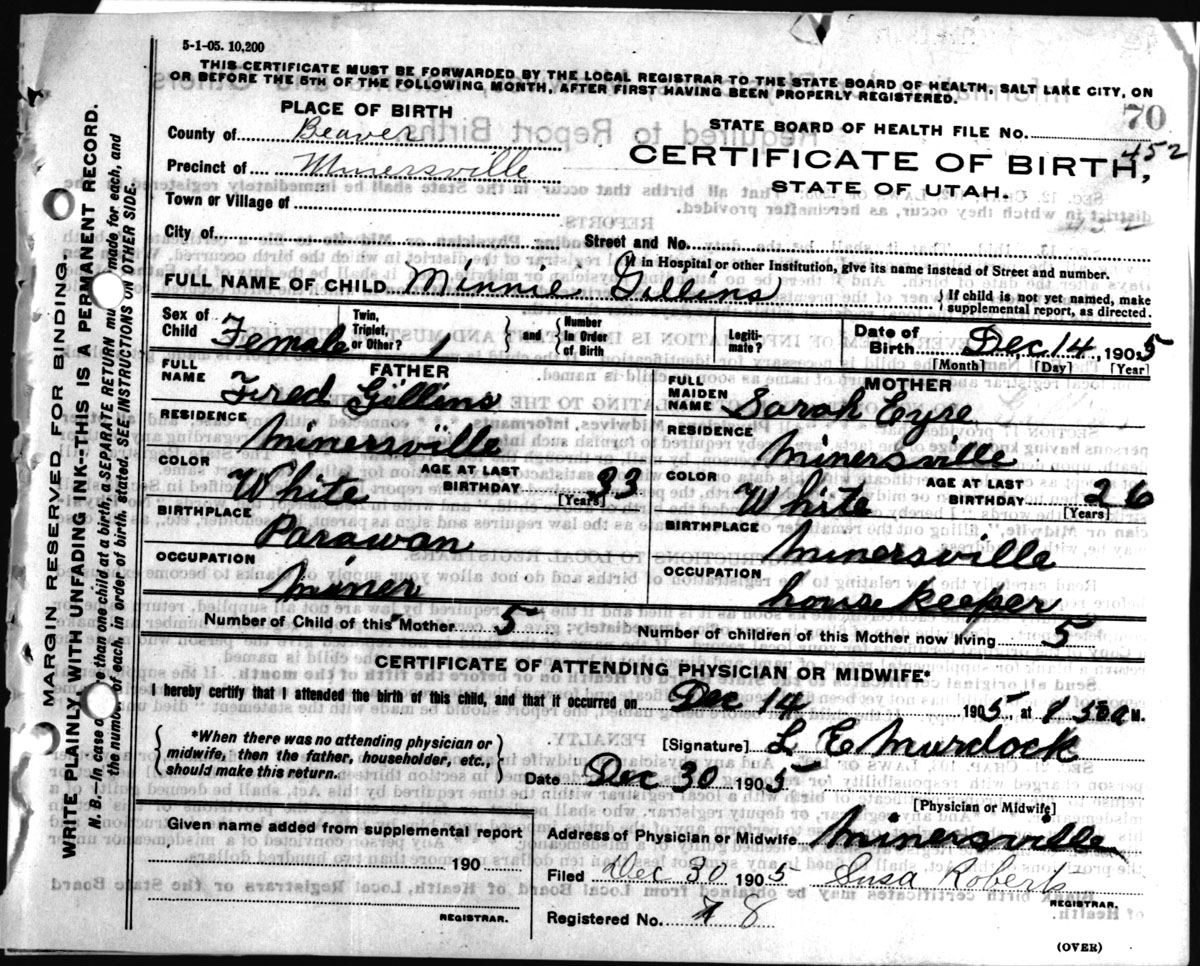 5-1-05. 10,200
THIS CERTIFICATE MUST BE FORWARDED BY THE LOCAL REGISTRAR TO THE STATE BOARD OF HEALTH, SALT LAKE CITY, ON
OR BEFORE THE 5TH OF THE FOLLOWING MONTH, AFTER FIRST HAVING BEEN PROPERLY REGISTERED.
70
PLACE OF BIRTH
STATE BOARD OF HEALTH FILE NO.
452
County of Beaver
CERTIFICATE OF BIRTH,
Precinct of Minersville
STATE OF UTAH.
Town or Village of
452
City of Street and No.
If in Hospital or other Institution, give its name instead of Street and number.
FULL NAME OF CHILD Minnie Gillins { If child is not yet named, make supplemental report, as directed.
Sex of Child Female Twin, Triplet, or Other? 1 } and { Number in Order of Birth Legitimate? Date of Birth Dec 14, 1905
[Month] [Day] [Year]
FATHER
MOTHER
FULL NAME Fred Gillins
FULL MAIDEN NAME Sarah Eyre
RESIDENCE Minersville
RESIDENCE Minersville
COLOR White AGE AT LAST BIRTHDAY 33 [Years]
COLOR White AGE AT LAST BIRTHDAY 26 [Years]
BIRTHPLACE Parawan
BIRTHPLACE Minersville
OCCUPATION Miner
OCCUPATION housekeeper
Number of Child of this Mother 5
Number of children of this Mother now living 5
CERTIFICATE OF ATTENDING PHYSICIAN OR MIDWIFE*
I hereby certify that I attended the birth of this child, and that it occurred on Dec 14 1905 at M.
{ *When there was no attending physician or midwife, then the father, householder, etc., should make this return. }
[Signature] L E Murdock
Date Dec 30 1905
[Physician or Midwife]
Given name added from supplemental report
Address of Physician or Midwife Minersville
190
Filed Dec 30 1905 Susa Roberts
REGISTRAR.
REGISTRAR.
Registered No. 8
(OVER)
MARGIN RESERVED FOR BINDING.
WRITE PLAINLY, WITH UNFADING INK--THIS IS A PERMANENT RECORD.
N. B.—In case of more than one child at a birth, a SEPARATE RETURN must be made for each, and
the number of each, in order of birth, stated. SEE INSTRUCTIONS ON OTHER SIDE.